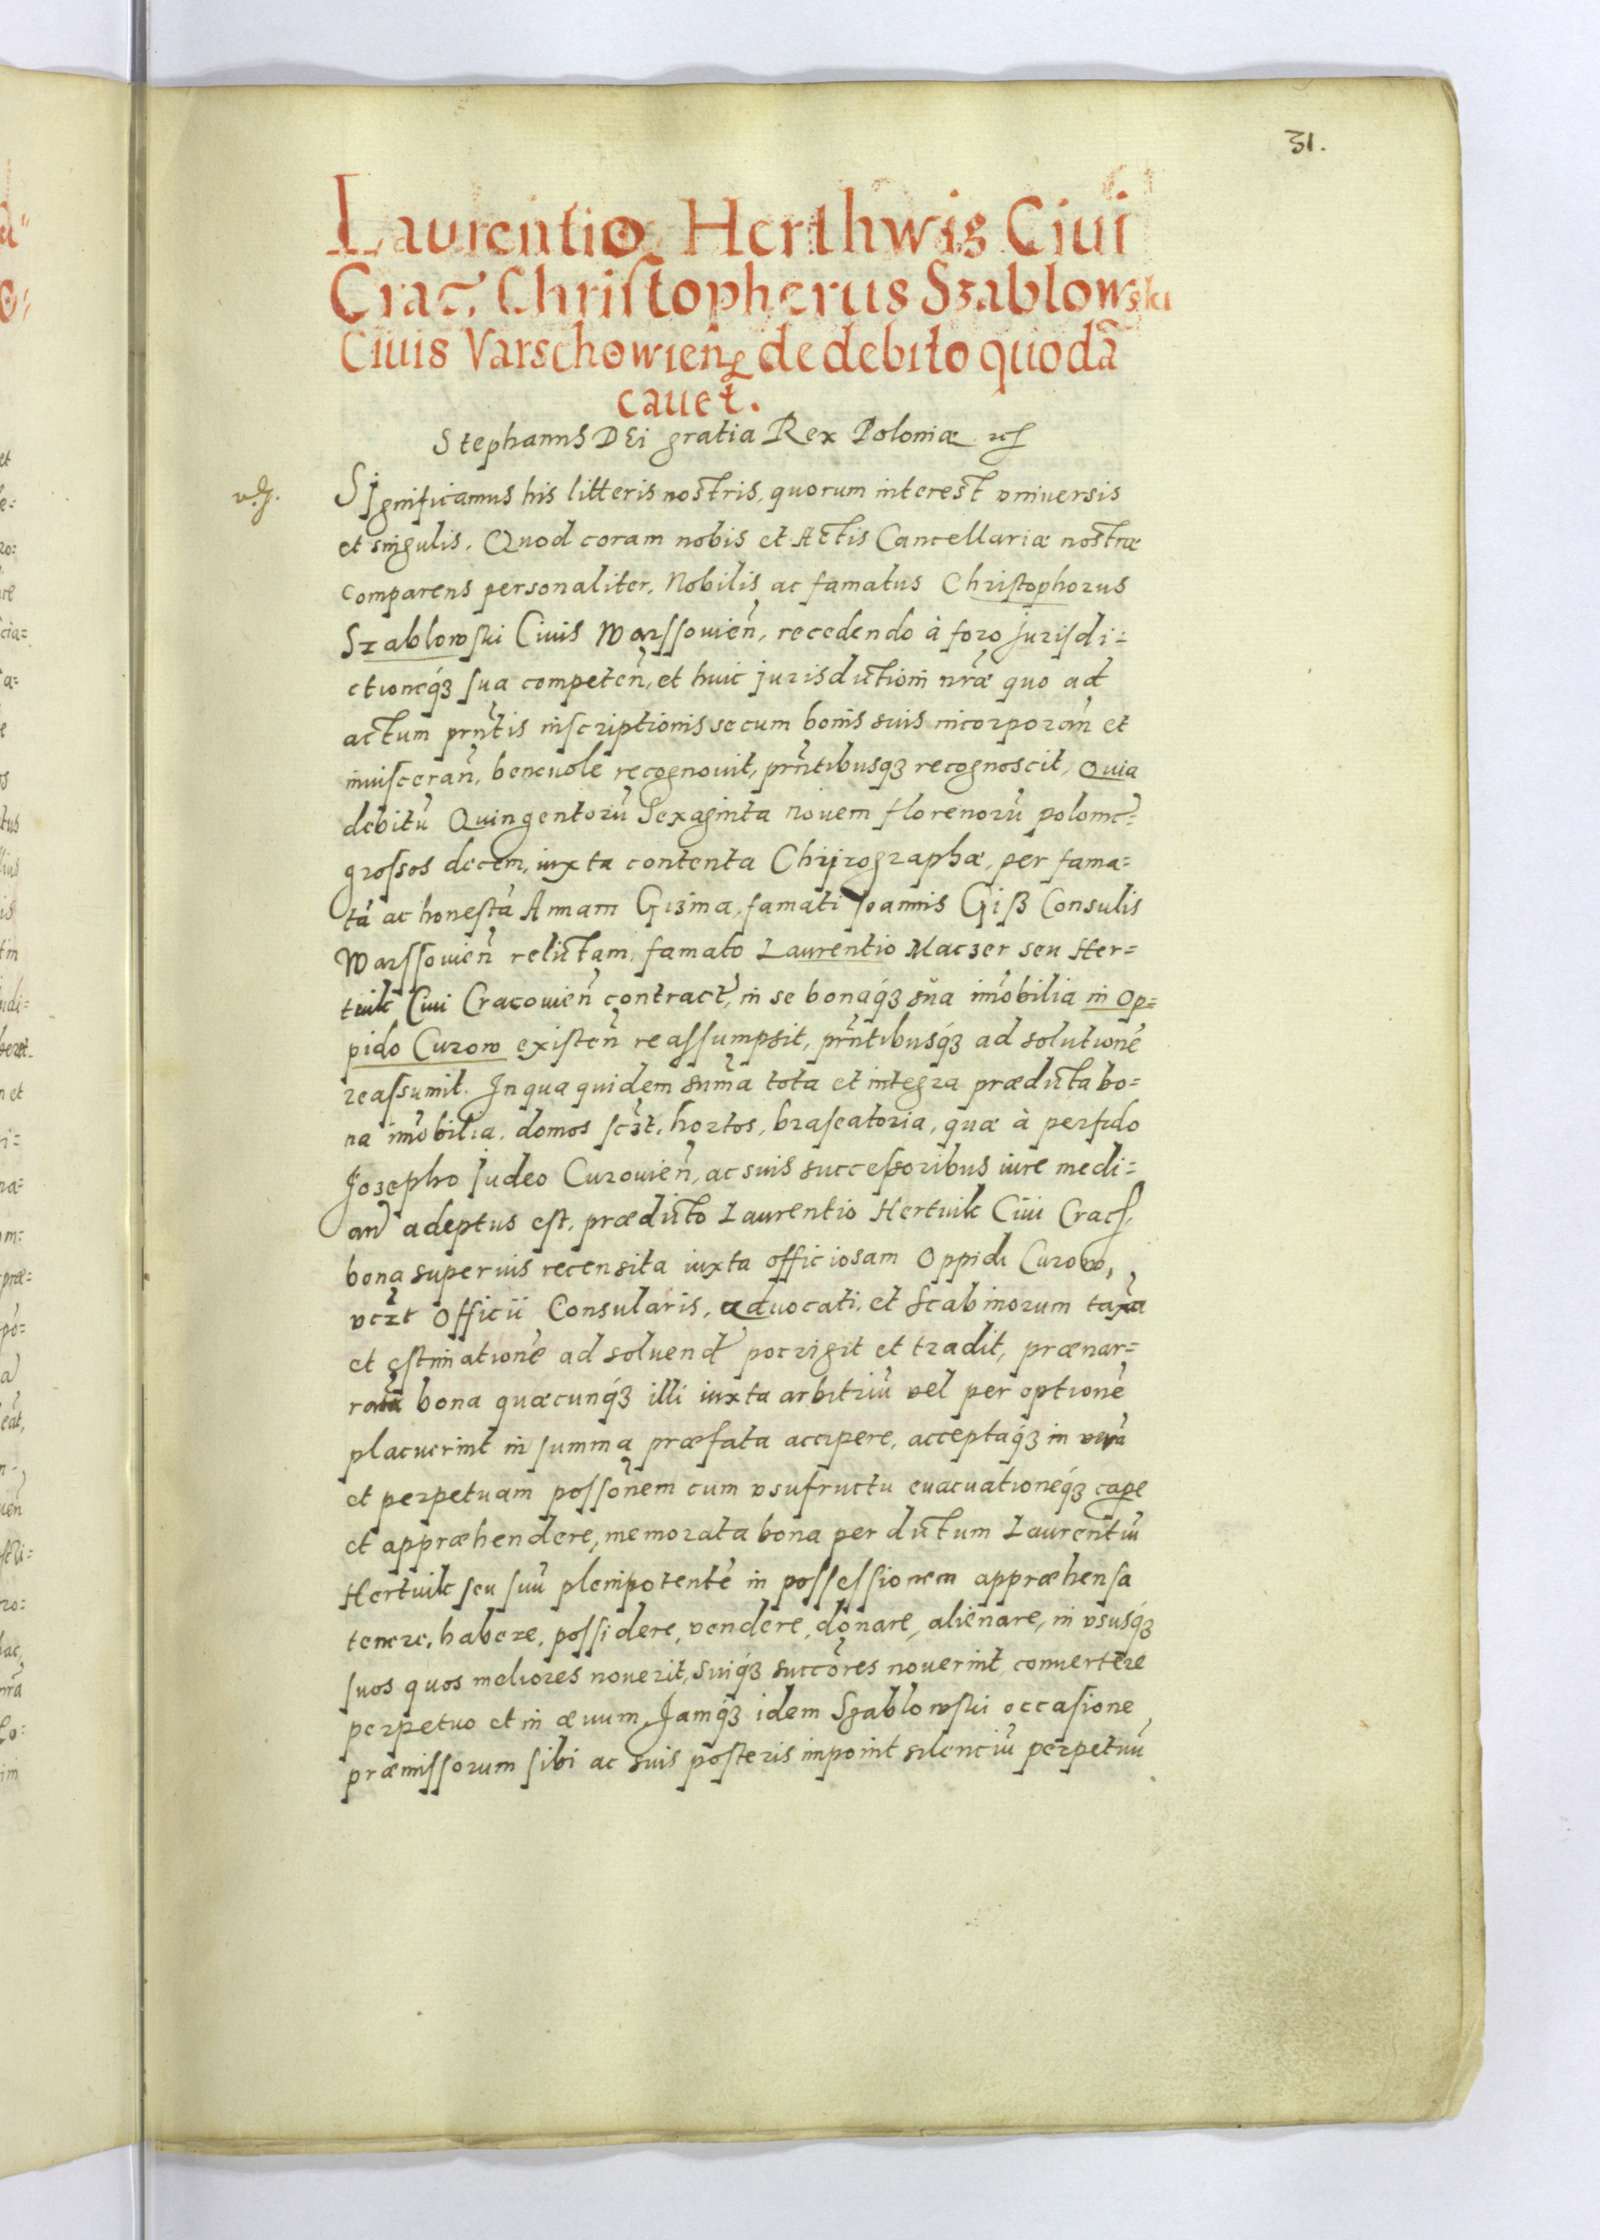 31.
Laurentio Herthwig Ciui
Crac̃. Christopherus Szablowski
Ciuis Varschowieñ de debito quodã
cauet.
Stephanus DEi gratia Rex Poloniæ etc
Significamus his litteris nostris, quorum interest vniuersis
et singulis. Quod coram nobis et Actis Cancellariæ nostræ
comparens personaliter. Nobilis ac famatus Christophorus
Szablowski Ciuis Warssouieñ, recedendo à foro jurisdi=
ctioneq́ꝫ sua competeñ, et huic jurisdictioni nr̃æ quo ad
actum pr̃ntis inscriptionis se cum bonis suis incorporañ et
inuisceran̄, beneuole recognouit, pr̃ntibusqꝫ recognoscit, Quia
debitũ Quingentorũ Sexaginta nouem florenorũ polonic̃=
grossos decem, iuxta contenta Chirographæ, per fama=
tã ac honestã Annam Gizina, famati Joannis Giß Consulis
Warssouieñ relictam, famato Laurentio Maczer seu Her=
tuik Ciui Cracouieñ contract̃, in se bonaq́ꝫ sua im̃obilia in Op=
pido Curow existeñ reassumpsit, pr̃ntibusq́ꝫ ad solutionẽ
reassumit. In qua quidem sum̃a tota et integra prædicta bo=
na im̃obilia. domos sczt. hortos, braseatoria, quæ à perfido
Josepho Judeo Curouieñ, ac suis successoribus iure medi=
añ adeptus est. prædicto Laurentio Hertuik Ciui Crac.
bona superius recensita iuxta officiosam Oppidi Curow,
vczt Officii Consularis, aduocati. et Scabinorum taxã
et estimationẽ ad soluend̃ porrigit et tradit, prænar=
rata bona quæcunq́ꝫ illi iuxta arbitriũ vel per optionẽ
placuerint in summa præfata accipere, acceptaq́ꝫ in verã
et perpetuam possõnem cum vsufructu euacuationeq́ꝫ cape
et appræhendere, memorata bona per dictum Laurentiũ
Hertuik seu suũ plenipotentẽ in possessionem appræhensa
tenere, habere, possidere, vendere, donare, alienare, in vsusq́ꝫ
suos quos meliores nouerit, suiq́ꝫ succõres nouerint, conuertere
perpetuo et in æuum. Jamq́ꝫ idem Szablowski occasione
præmissorum sibi ac suis posteris imponit silenciũ perpetuũ